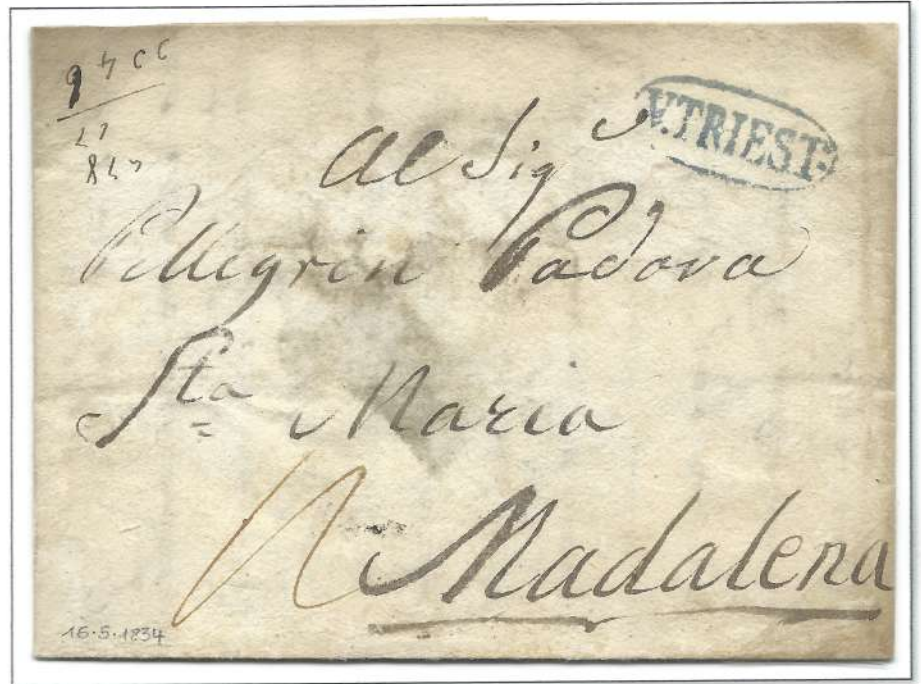 V. TRIEST.
Al Sig.r
Pellegrin Padova
Sta Maria
Madalena
16.5.1834